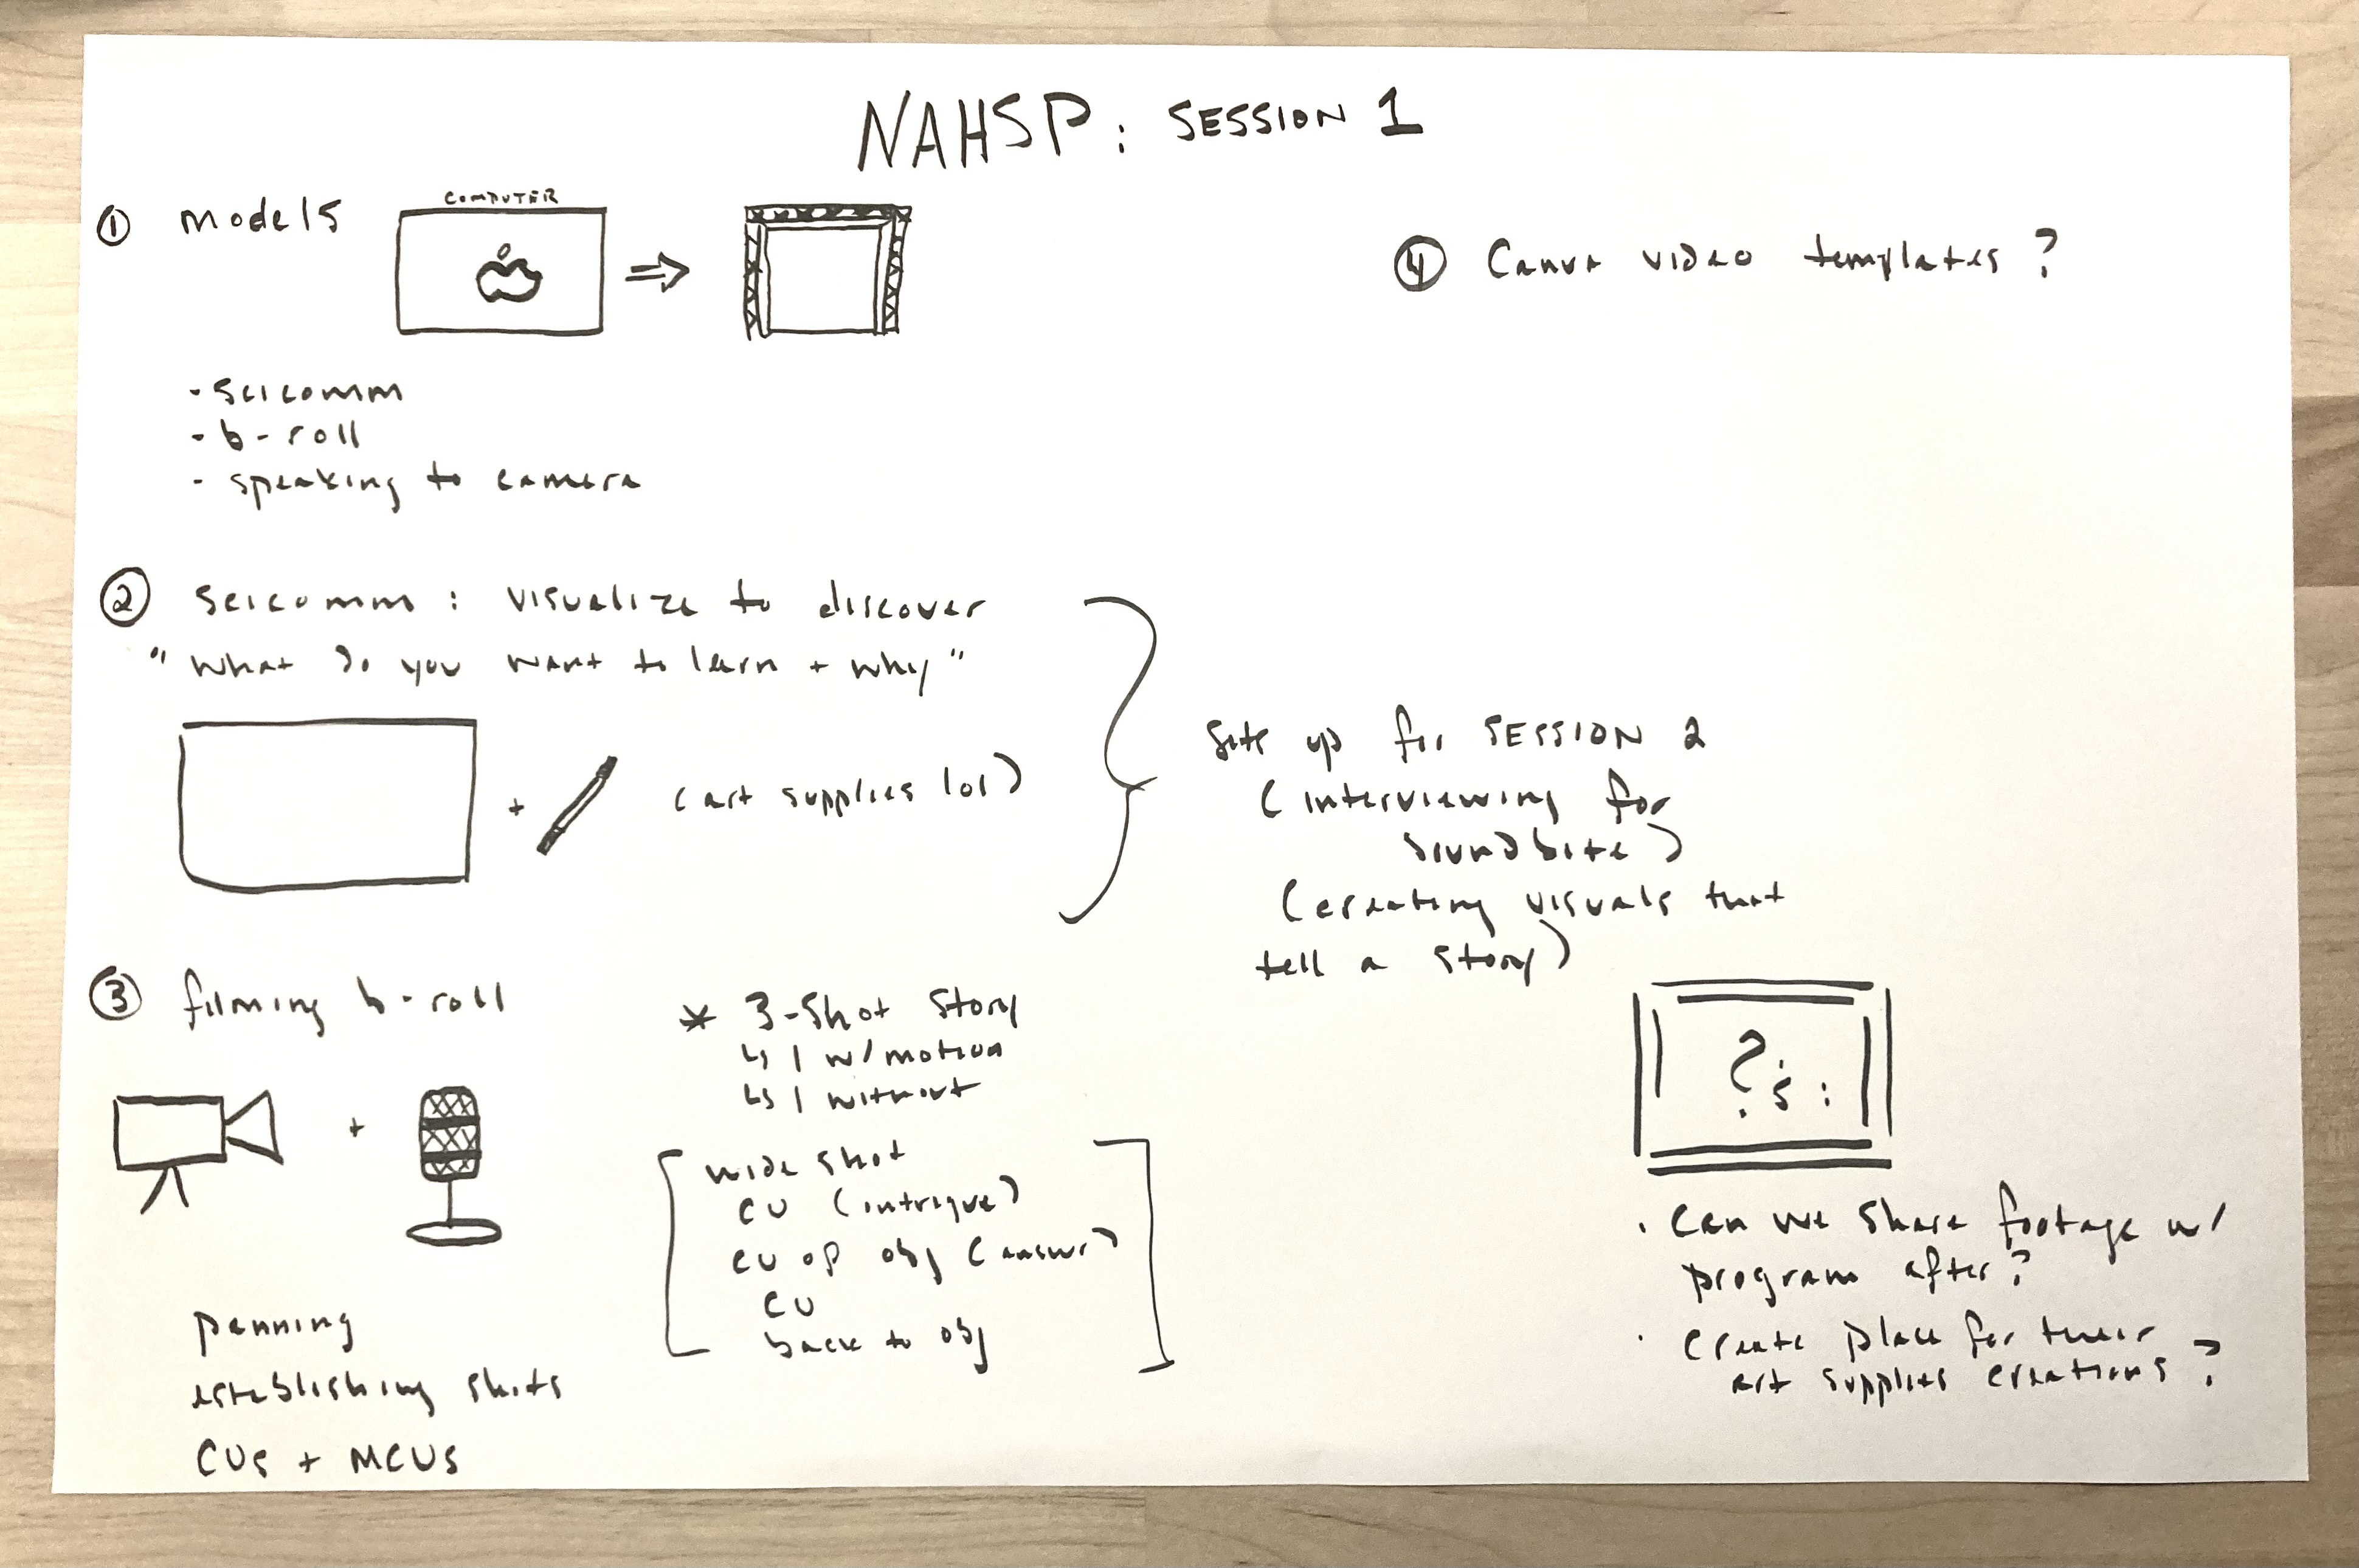 NAHSP: SESSION 1
① models
COMPUTER
- scicomm
- b-roll
- speaking to camera
② scicomm: visualize to discover
"what do you want to learn + why"
+
(art supplies lol)
sets up for SESSION 2
(interviewing for
soundbite)
(creating visuals that
tell a story)
③ filming b-roll
+
panning
establishing shots
CUs + MCUs
* 3-shot story
↳ 1 w/motion
↳ 1 without
[wide shot
CU (intrigue)
CU of obj (answr)
CU
back to obj]
④ Canva video templates?
?s:
· Can we share footage w/
program after?
· create place for their
art supplies creations?